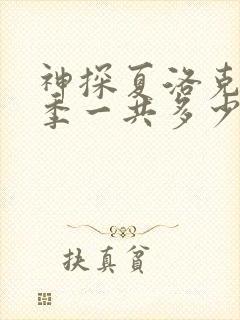 神探夏洛克
季一共多少
扶真贫